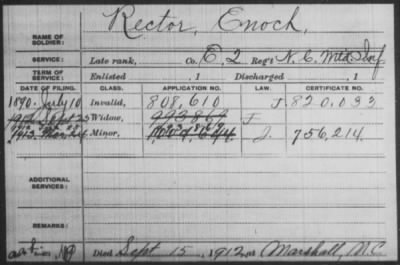 NAME OF SOLDIER: Rector, Enoch,
SERVICE: Late rank, Co. E, 2 Reg't N.C. Mtd. Inf
TERM OF SERVICE: Enlisted , 1 Discharged , 1
DATE OF FILING. CLASS. APPLICATION NO. LAW. CERTIFICATE NO.
1890. July 10 Invalid, 808,610 J. 820,033
1912 Sept 25 Widow, J
Minor, J. 756,214.
ADDITIONAL SERVICES:
REMARKS:
Died Sept 15, 1912, at Marshall, N.C.